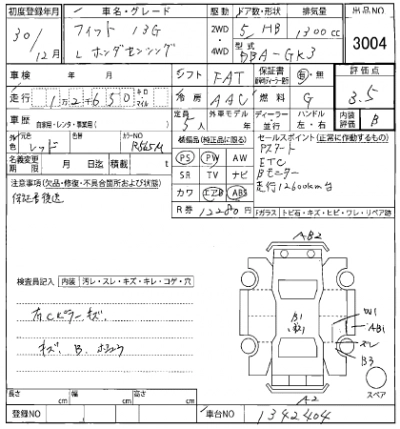 初度登録年月 車名・グレード 駆動 ドア数・形状 排気量 出品NO
30/12月 フィット 13G 2WD・4WD 5 HB 1300cc 3004
L ホンダセンシング 型式 DBA-GK3
車検 年 月 シフト FAT 保証書 有・無 評価点
走行 12650 キロ マイル 冷房 AAC 燃料 G 3.5
車歴 自家用・レンタ・事業用( ) 定員 5人 外車モデル 年 ディーラー 並行 ハンドル 左・右 内装評価 B
外色 元色 レッド カラーNO R565M 装備品(純正品に限る) セールスポイント(正常に作動するもの)
名義変更期限 月 日迄 積載 t PS PW AW Pスタート
SR TV ナビ ETC
注意事項(欠品・修復・不具合箇所および状態) カワ エアB ABS Bモニター
保証書後送 R券 12280円 走行12600km台
Fガラス トビ石・キズ・ヒビ・ワレ・リペア跡
AB2
検査員記入 内装 汚レ・スレ・キズ・キレ・コゲ・穴
右Cピラーキズ B1 W1
AB1
キズ、B、 B3
スペア
長さ cm 幅 cm 高さ cm A2
登録NO 車台NO 1342404